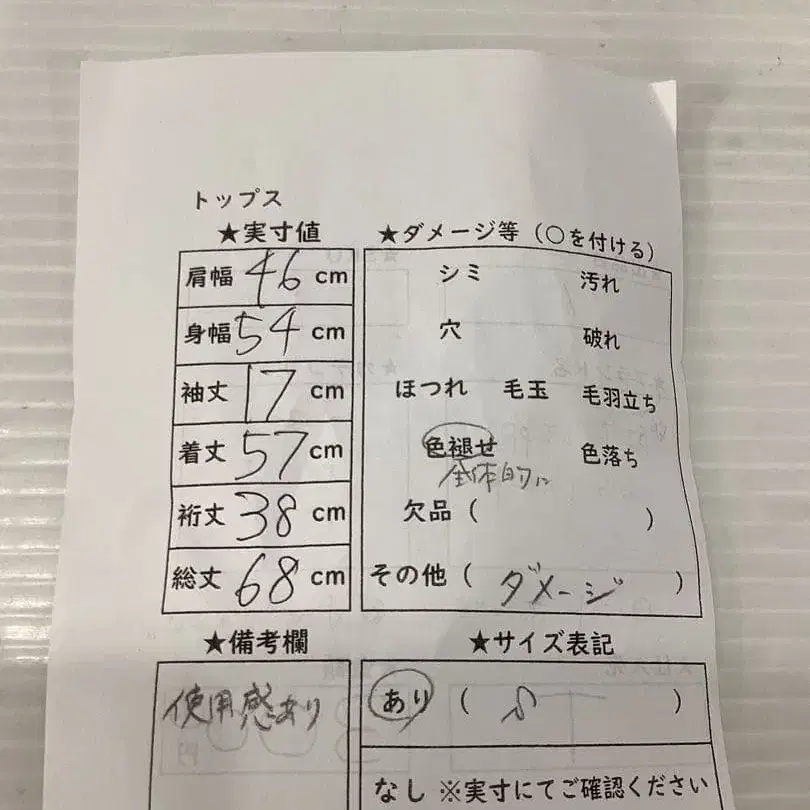 トップス
★実寸値
肩幅 46 cm
身幅 54 cm
袖丈 17 cm
着丈 57 cm
裄丈 38 cm
総丈 68 cm
★ダメージ等（○を付ける）
シミ 汚れ
穴 破れ
ほつれ 毛玉 毛羽立ち
色褪せ 色落ち
全体的に
欠品（ ）
その他（ ダメージ ）
★備考欄
使用感あり
★サイズ表記
あり（ S ）
なし ※実寸にてご確認ください